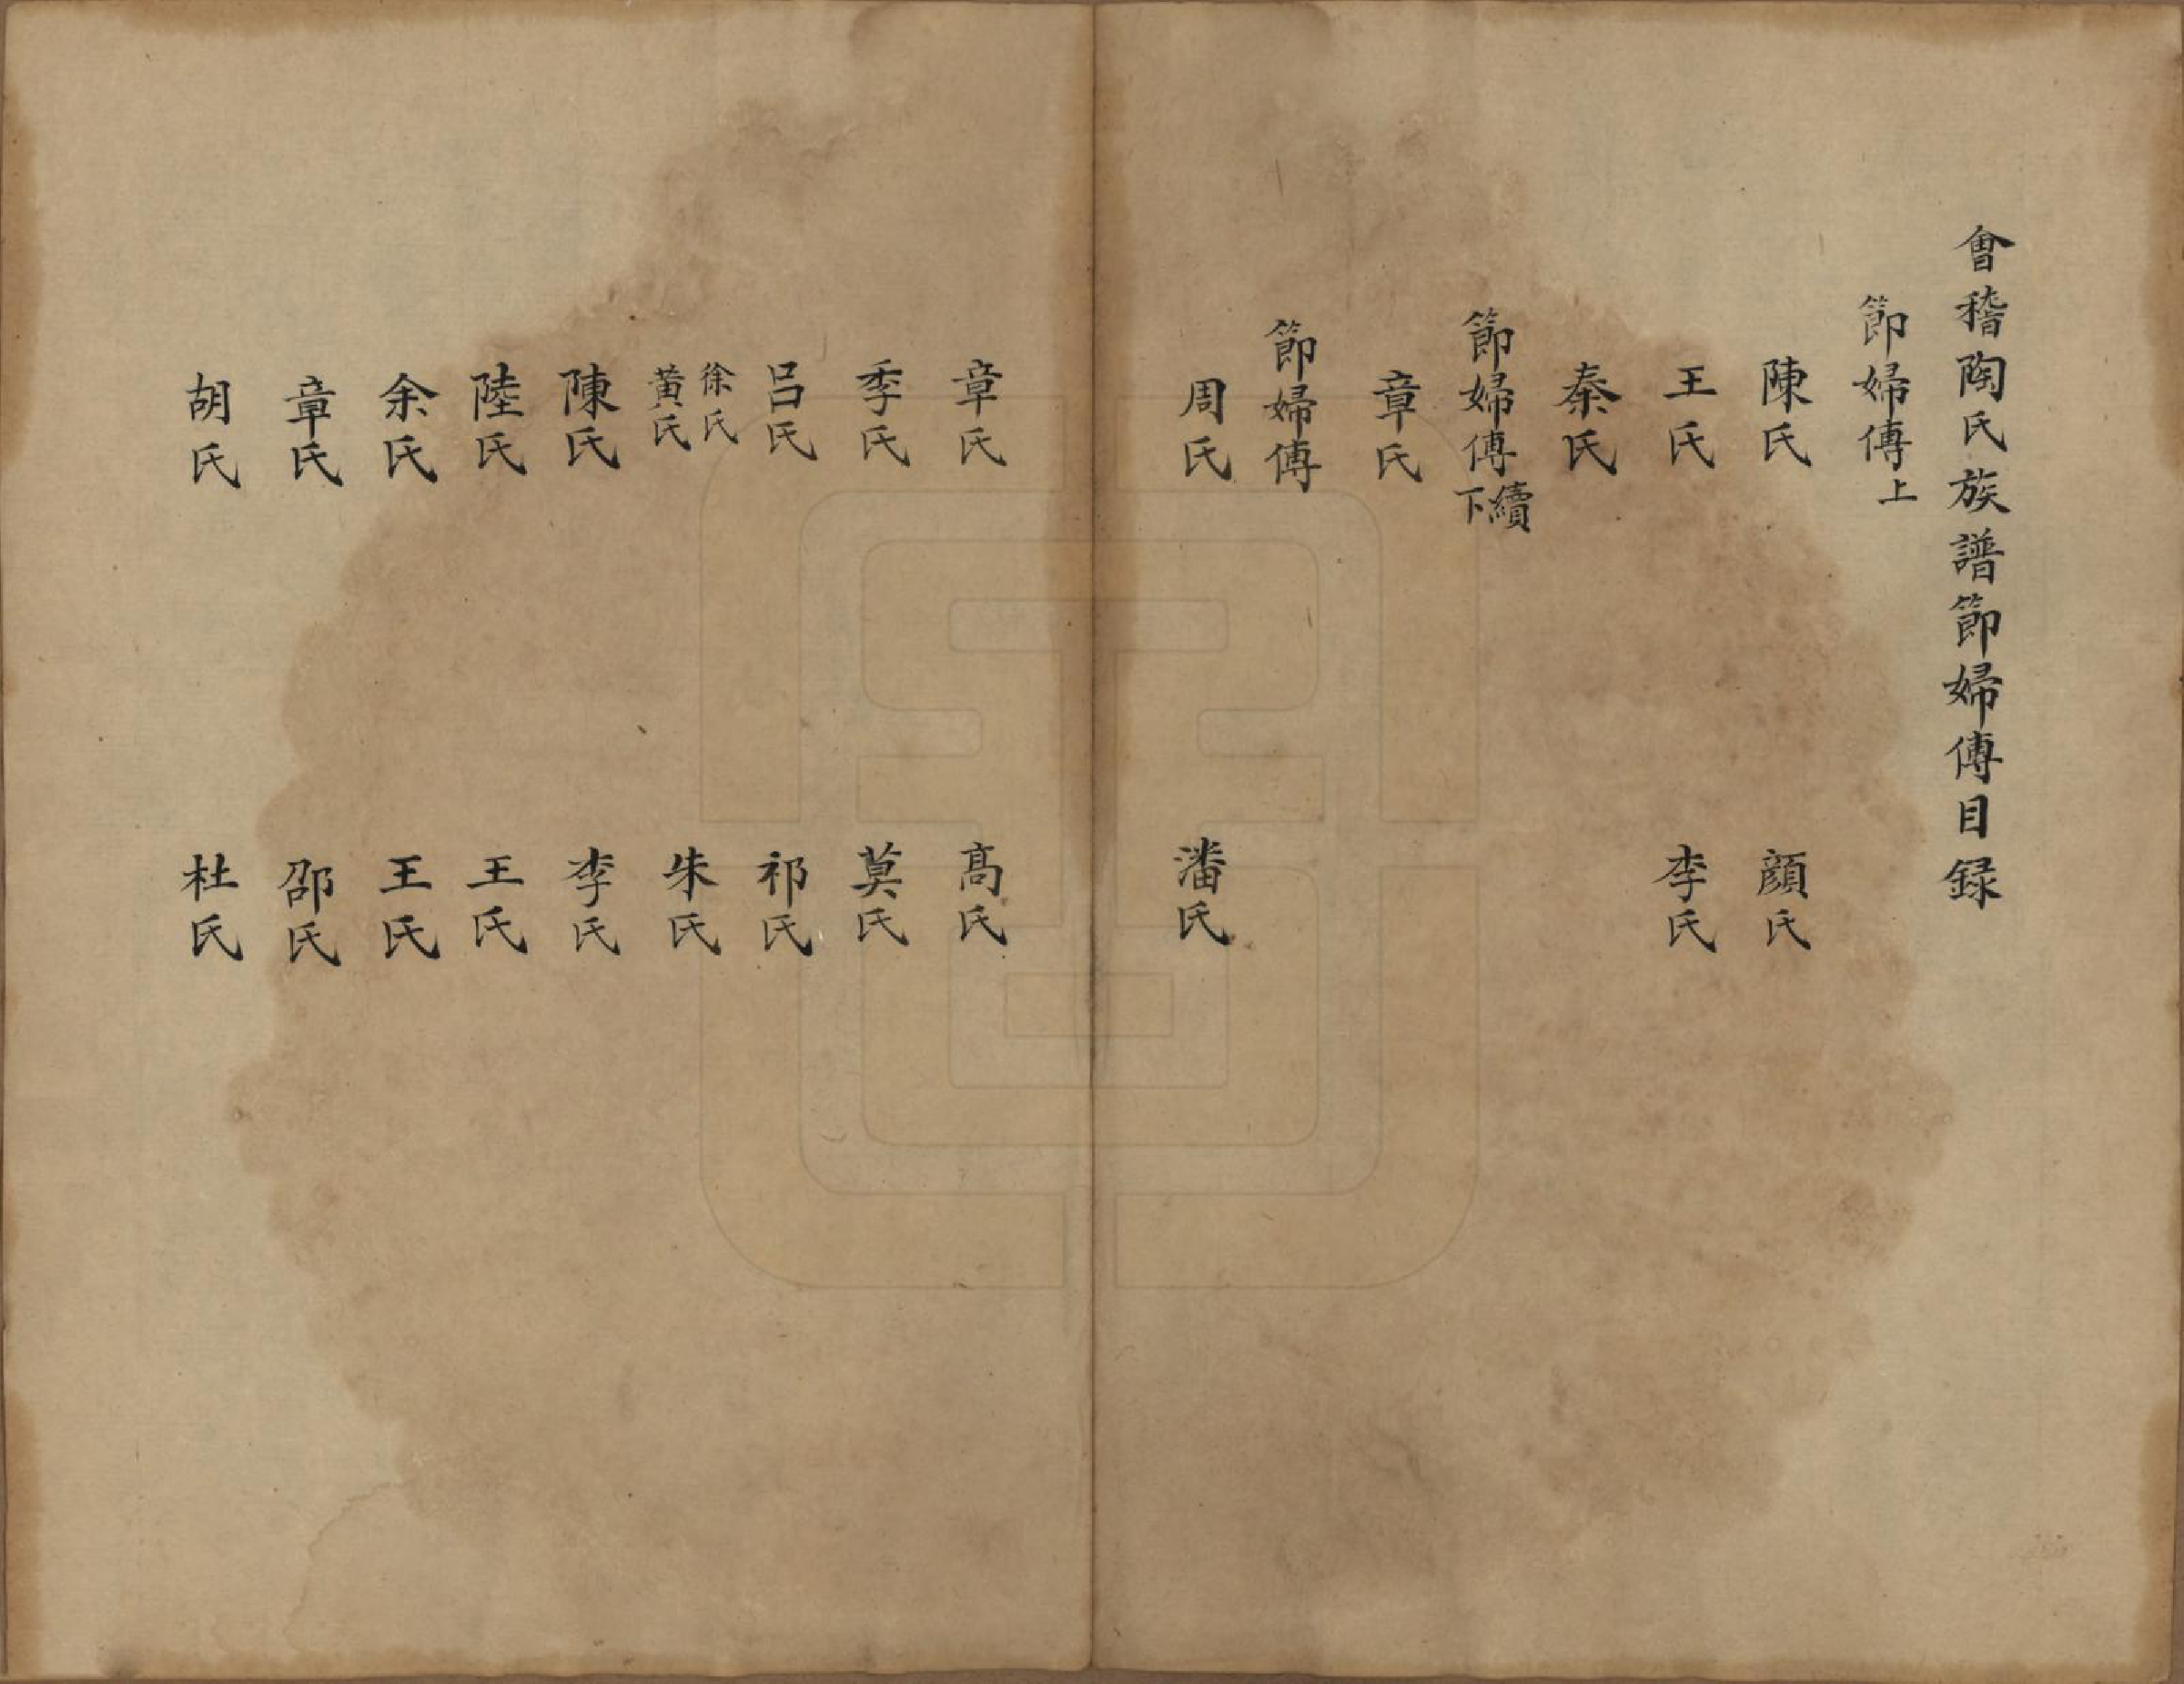 會稽陶氏族譜節婦傳目錄
節婦傳上
陳氏 顔氏
王氏 李氏
秦氏
節婦傳續下
章氏
節婦傳
周氏 潘氏
章氏 高氏
季氏 莫氏
呂氏 祁氏
徐氏 黃氏 朱氏
陳氏 李氏
陸氏 王氏
余氏 王氏
章氏 邵氏
胡氏 杜氏